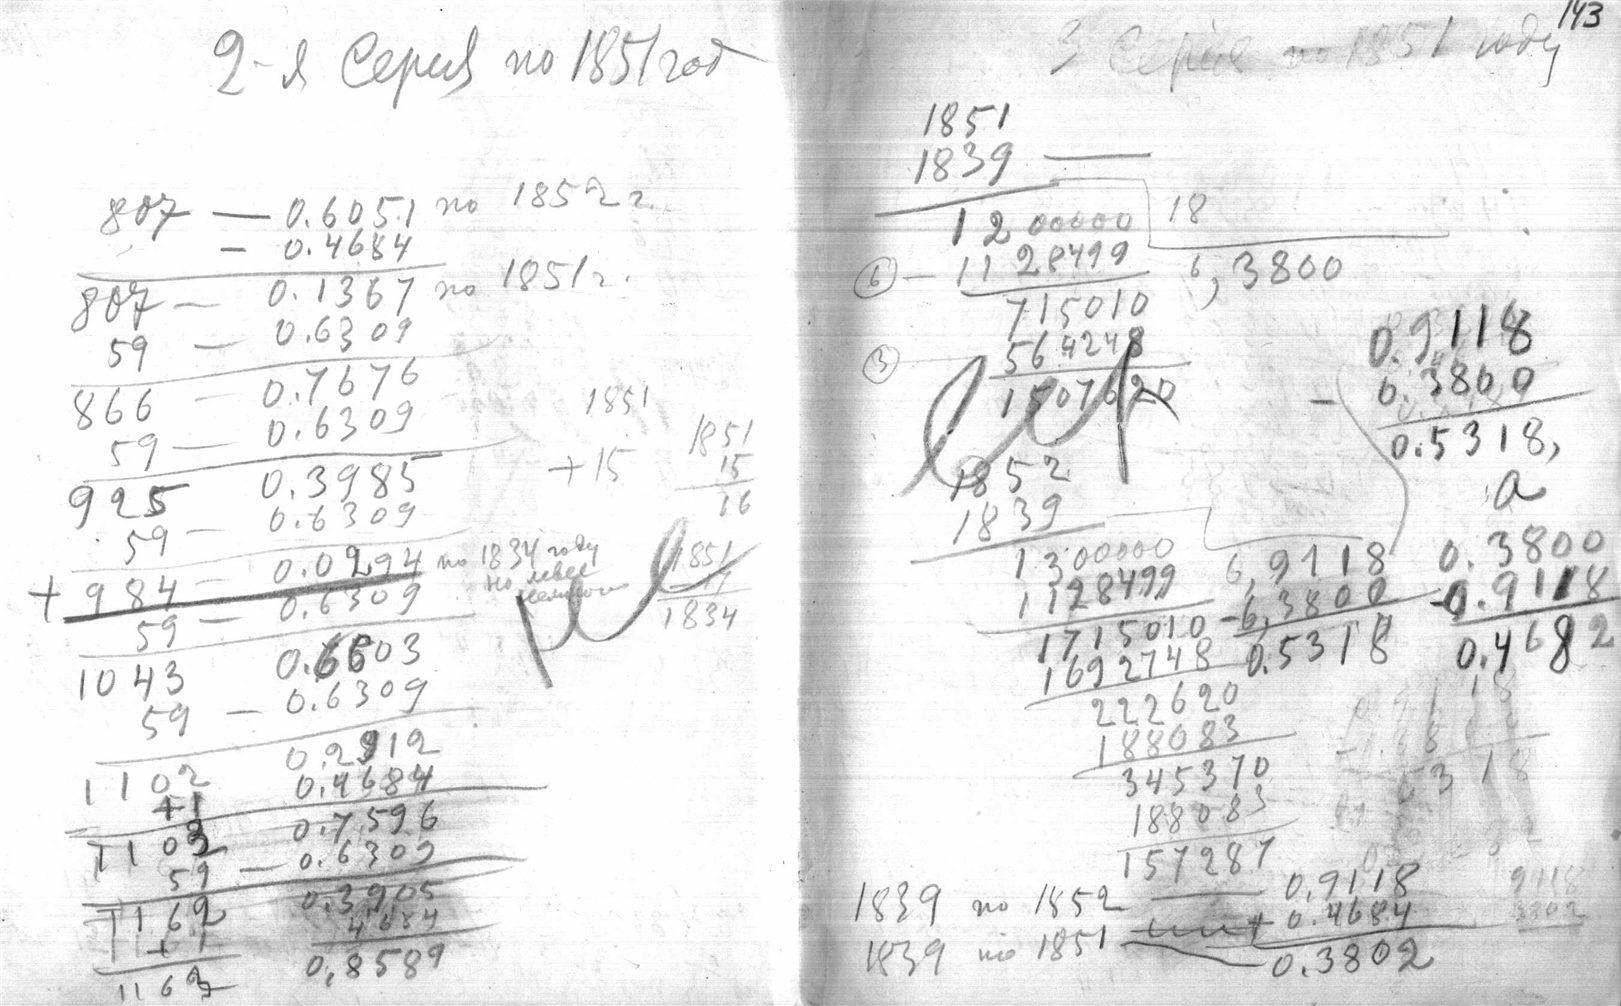 2-я Серия по 1851 год
807 — 0.6051 по 1852 г.
— 0.4684
807 — 0.1367 по 1851 г.
59 — 0.6309
866 — 0.7676
59 — 0.6309
925 0.3985
59 — 0.6309
+ 984 — 0.0294 по 1834 году
59 — 0.6309
1043 0.6603
59 — 0.6309
1102 0.2912
+1 0.4684
1103 0.7596
59 — 0.6309
1162 0.3905
+1 4684
1163 0,8589
1851
+15
1851
15
16
1851
17
1834
143
3 Серия по 1851 году
1851
1839
1200000 18
⑥ — 1128499 6,3800
715010
③ 564248
1507620
0.9118
— 0.3800
0.5318,
а
1852
1839
1300000 6,9118
1128499 -6,3800
1715010 0.5318
1692748
222620
188083
345370
188083
157287
0.3800
-0.9118
0.4682
1839 по 1852 — 0,9118
+ 0.4684
1839 по 1851 — 0.3802